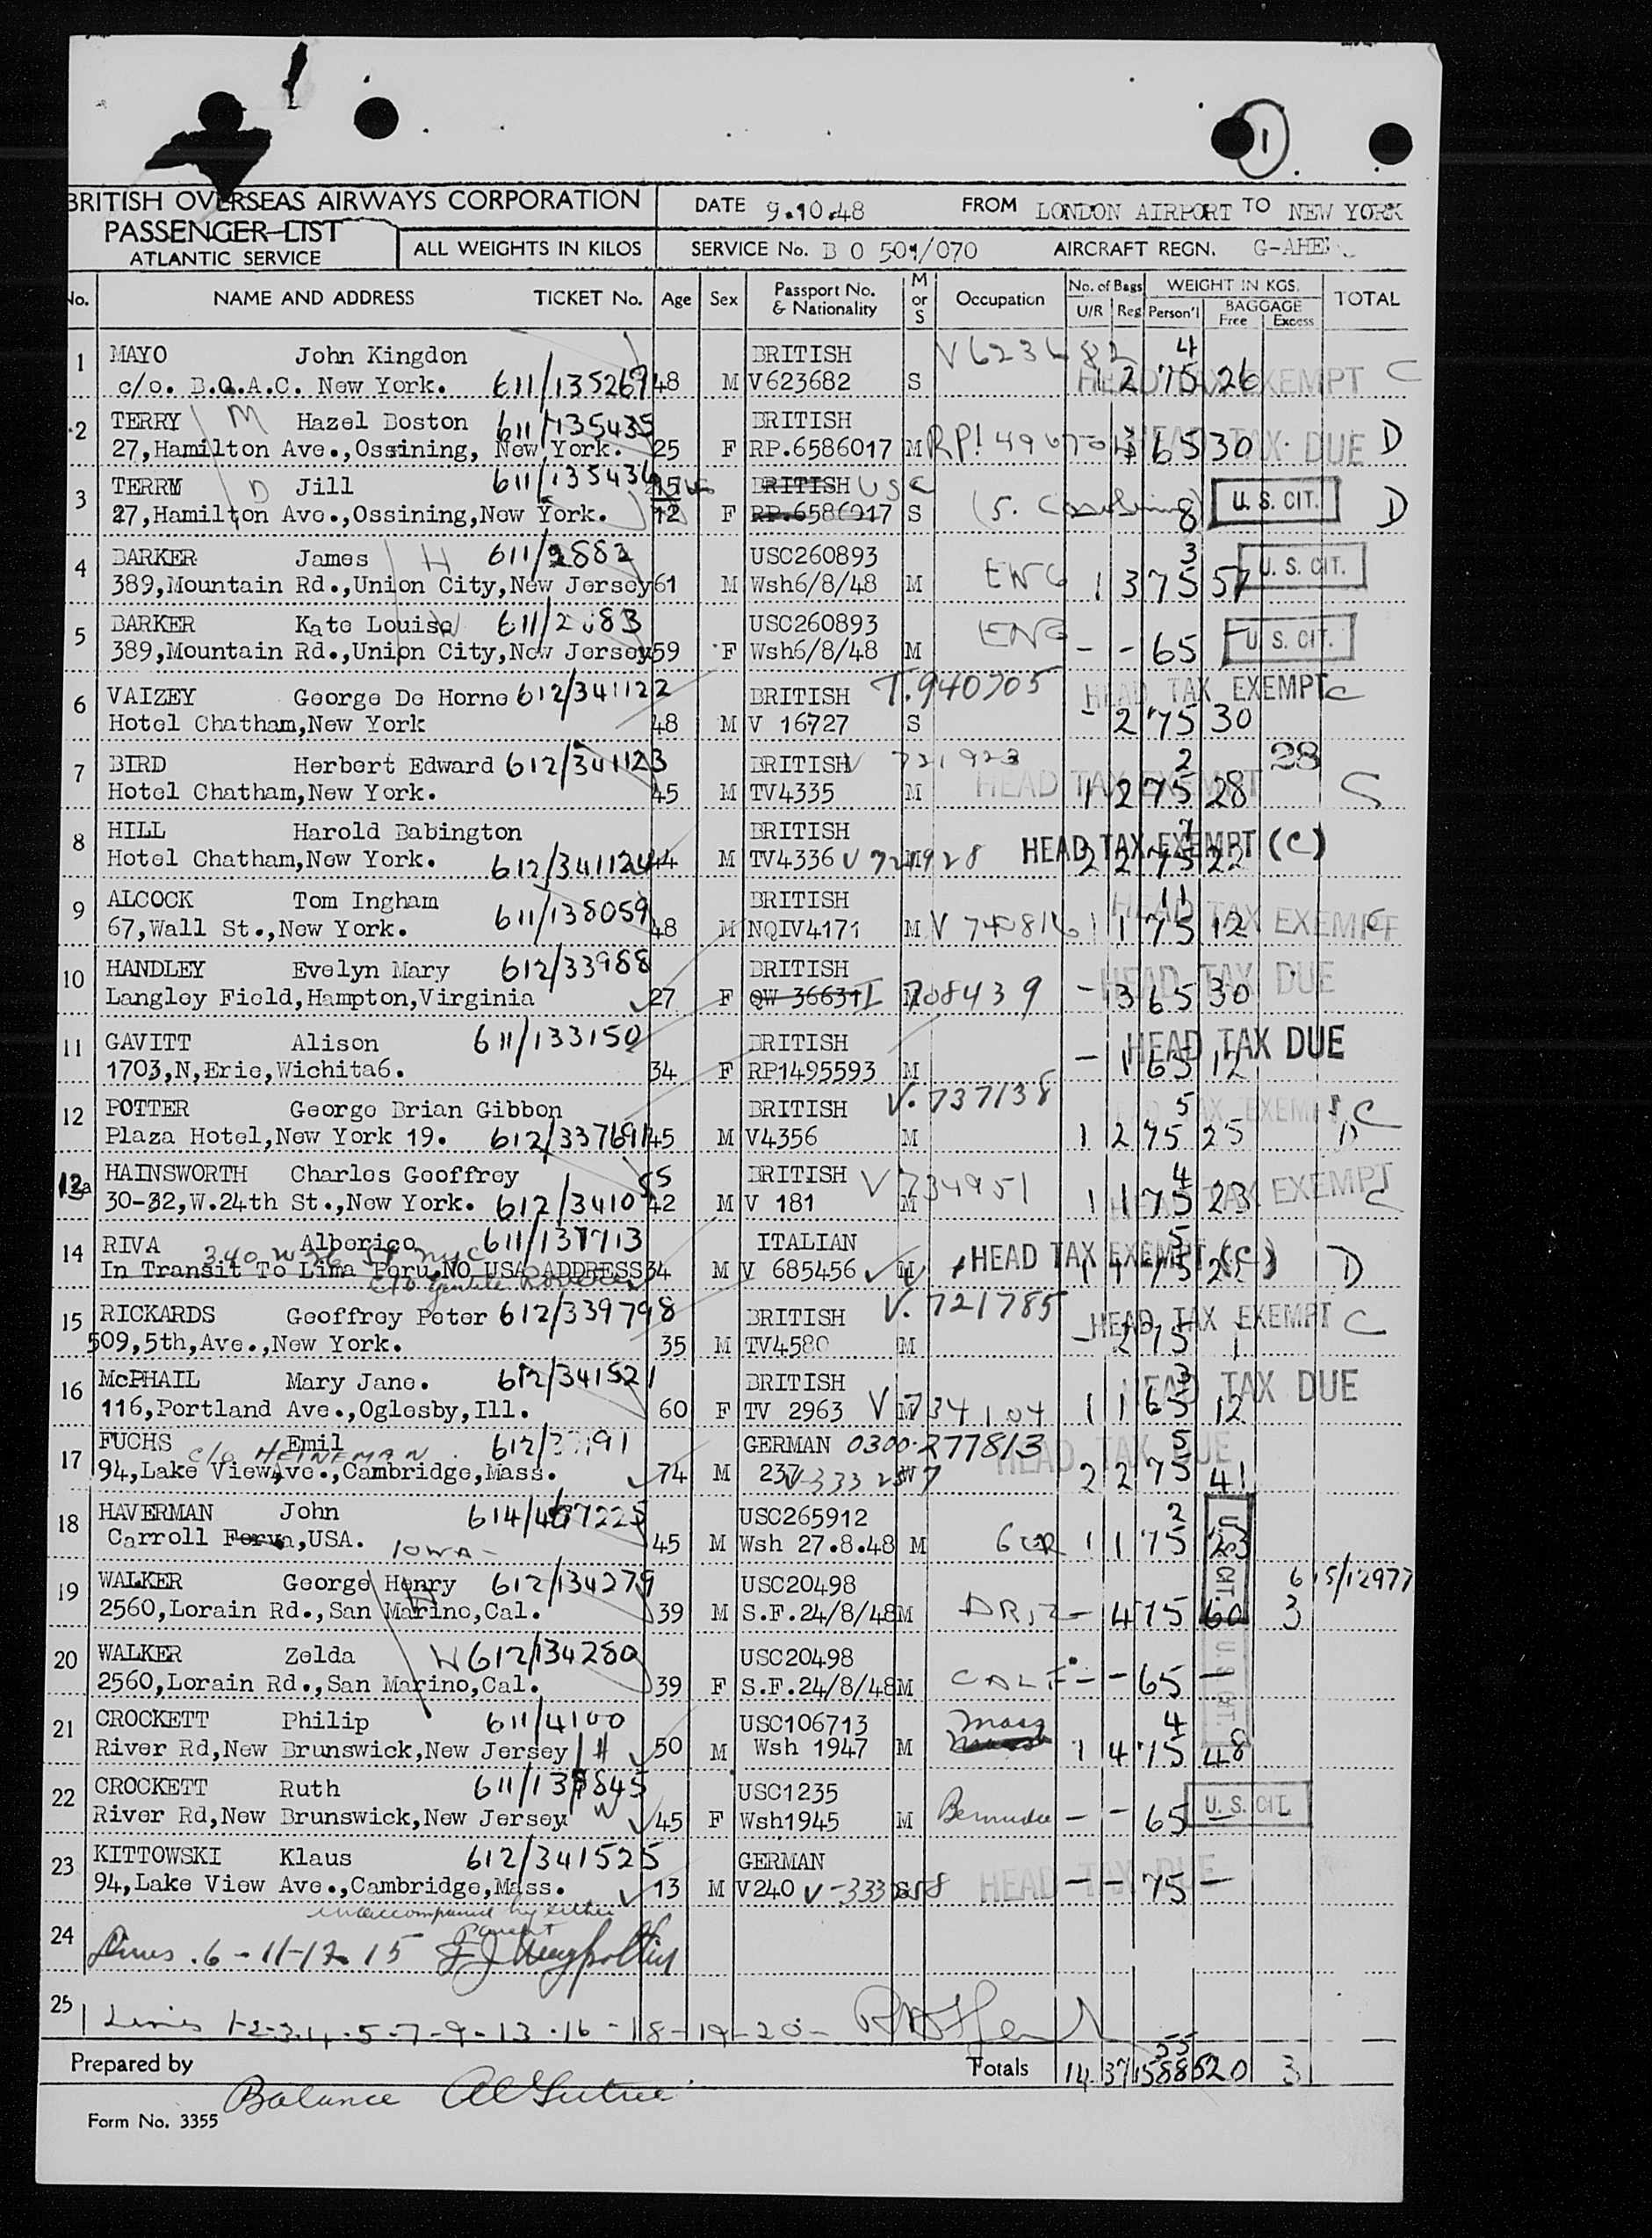 1
BRITISH OVERSEAS AIRWAYS CORPORATION
PASSENGER LIST
ATLANTIC SERVICE
ALL WEIGHTS IN KILOS
DATE 9.10.48 FROM LONDON AIRPORT TO NEW YORK
SERVICE No. B O 501/070 AIRCRAFT REGN. G-AHE
No. NAME AND ADDRESS TICKET No. Age Sex Passport No. & Nationality M or S Occupation No. of Bags U/R Reg WEIGHT IN KGS. Person'l BAGGAGE Free Excess TOTAL
1 MAYO John Kingdon BRITISH V623682 4
c/o. B.O.A.C. New York. 611/135269 48 M V623682 S 1 2 75 26 HEAD TAX EXEMPT C
2 TERRY M Hazel Boston 611/135435 BRITISH
27,Hamilton Ave.,Ossining, New York. 25 F RP.6586017 M 65 30 HEAD TAX DUE D
3 TERRY D Jill 611/135436 BRITISH USC
27,Hamilton Ave.,Ossining,New York. 12 F RP.6586017 S 8 U. S. CIT. D
4 BARKER James H 611/2882 USC260893 3
389,Mountain Rd.,Union City,New Jersey 61 M Wsh6/8/48 M ENG 1 3 75 57 U. S. CIT.
5 BARKER Kate Louise W 611/2883 USC260893
389,Mountain Rd.,Union City,New Jersey 59 F Wsh6/8/48 M ENG - - 65 - U. S. CIT.
6 VAIZEY George De Horne 612/341122 BRITISH T.940705 HEAD TAX EXEMPT C
Hotel Chatham,New York 48 M V 16727 S - 2 75 30
7 BIRD Herbert Edward 612/341123 BRITISH V 721923 2 28
Hotel Chatham,New York. 45 M TV4335 M HEAD TAX EXEMPT 1 2 75 28 C
8 HILL Harold Babington BRITISH 7 HEAD TAX EXEMPT (C)
Hotel Chatham,New York. 612/341124 44 M TV4336 V 721928 M 2 2 75 22
9 ALCOCK Tom Ingham BRITISH 11
67,Wall St.,New York. 611/138059 48 M NQIV4171 M V 740816 1 1 75 12 HEAD TAX EXEMPT C
10 HANDLEY Evelyn Mary 612/33988 BRITISH HEAD TAX DUE
Langley Field,Hampton,Virginia 27 F QW 36631 I 708439 M - 3 65 30
11 GAVITT Alison 611/133150 BRITISH HEAD TAX DUE
1703,N,Erie,Wichita6. 34 F RP1495593 M - 1 65 12
12 POTTER George Brian Gibbon BRITISH V. 737138 5 HEAD TAX EXEMPT C
Plaza Hotel,New York 19. 612/337691 45 M V4356 M 1 2 75 25 D
12a HAINSWORTH Charles Geoffrey BRITISH V 734951 4
30-32,W.24th St.,New York. 612/341055 42 M V 181 M 1 1 75 23 HEAD TAX EXEMPT C
14 RIVA Alberico 611/137713 ITALIAN 5
340 W 26 St NYC
In Transit To Lima Peru,NO USA ADDRESS 34 M V 685456 M HEAD TAX EXEMPT (C) 1 1 75 22 D
15 RICKARDS Geoffrey Peter 612/339798 BRITISH V. 721785 HEAD TAX EXEMPT C
509,5th,Ave.,New York. 35 M TV4580 M - 2 75 1
16 McPHAIL Mary Jane. 612/341521 BRITISH 3 HEAD TAX DUE
116,Portland Ave.,Oglesby,Ill. 60 F TV 2963 V 734104 M 1 1 65 12
17 FUCHS Emil 612/ GERMAN 0300-277813 5 HEAD TAX DUE
c/o HEINEMAN
94,Lake View Ave.,Cambridge,Mass. 74 M 237 W 2 2 75 41
18 HAVERMAN John 614/467225 USC265912 2 U. S. CIT.
Carroll IOWA,USA. 45 M Wsh 27.8.48 M GER 1 1 75 23
19 WALKER George Henry H 612/134279 USC20498 615/12977
2560,Lorain Rd.,San Marino,Cal. 39 M S.F.24/8/48 M ARIZ - 4 75 60 3
20 WALKER Zelda W 612/134280 USC20498 U. S. CIT.
2560,Lorain Rd.,San Marino,Cal. 39 F S.F.24/8/48 M CALF - - 65 -
21 CROCKETT Philip 611/4100 USC106713 Mass 4
River Rd,New Brunswick,New Jersey H 50 M Wsh 1947 M 1 4 75 48
22 CROCKETT Ruth 611/137845 USC1235
River Rd,New Brunswick,New Jersey W 45 F Wsh1945 M Bermuda - - 65 - U. S. CIT.
23 KITTOWSKI Klaus 612/341525 GERMAN
94,Lake View Ave.,Cambridge,Mass. 13 M V240 V-333258 S HEAD TAX DUE - - 75 -
unaccompanied by either parent
24 Lines . 6 - 11-12 15
25 Lines 1-2-3-4-5-7-9-13-16-18-19-20-
Prepared by Totals 14 37 55 1588 520 3
Balance
Form No. 3355